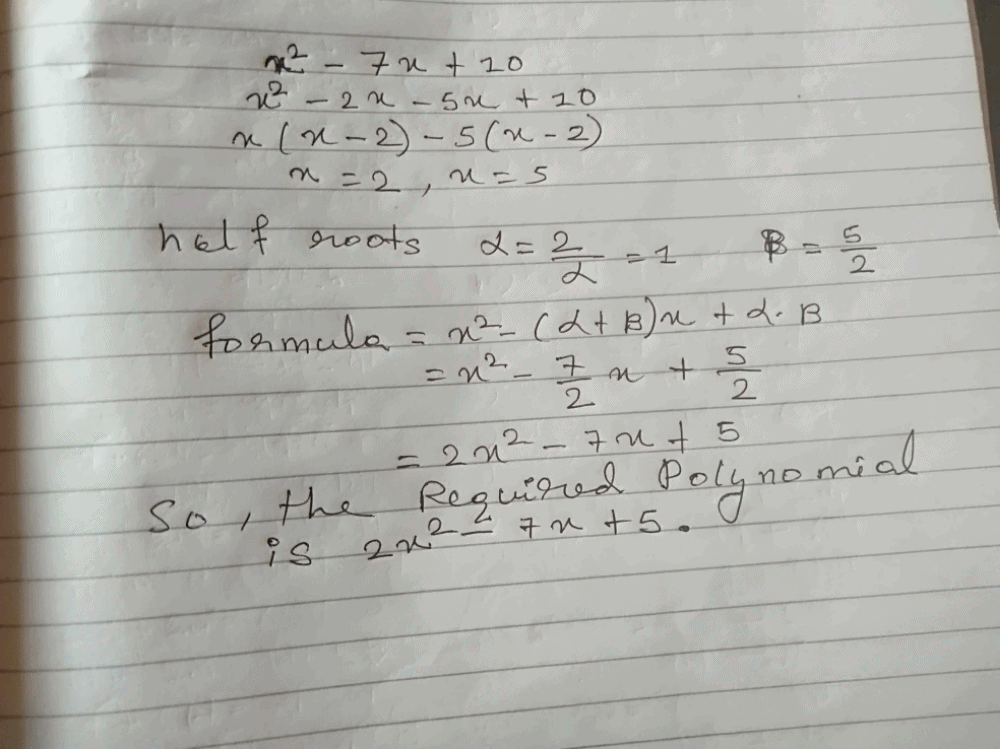 x² - 7x + 10
x² - 2x - 5x + 10
x (x - 2) - 5 (x - 2)
x = 2 , x = 5
half roots α = 2/2 = 1 β = 5/2
formula = x² - (α + β)x + α · β
= x² - 7/2 x + 5/2
= 2x² - 7x + 5
So, the Required Polynomial
is 2x² - 7x + 5.